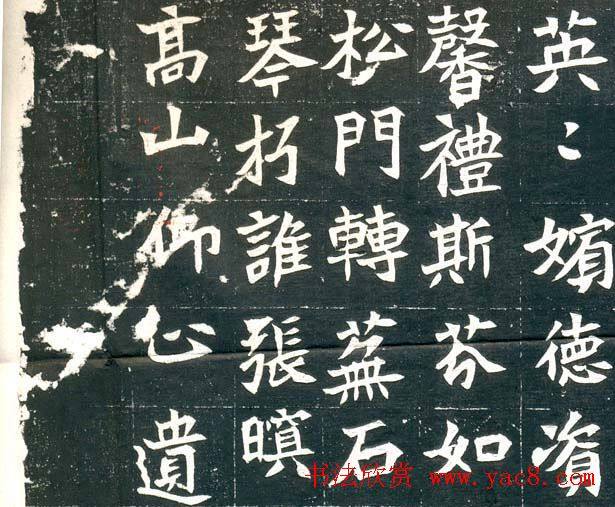 英〻嬪德资
馨禮斯苾如
松門轉蕪石
琴朽誰張暝
高山仰止遺
书法欣赏 www.yac8.com